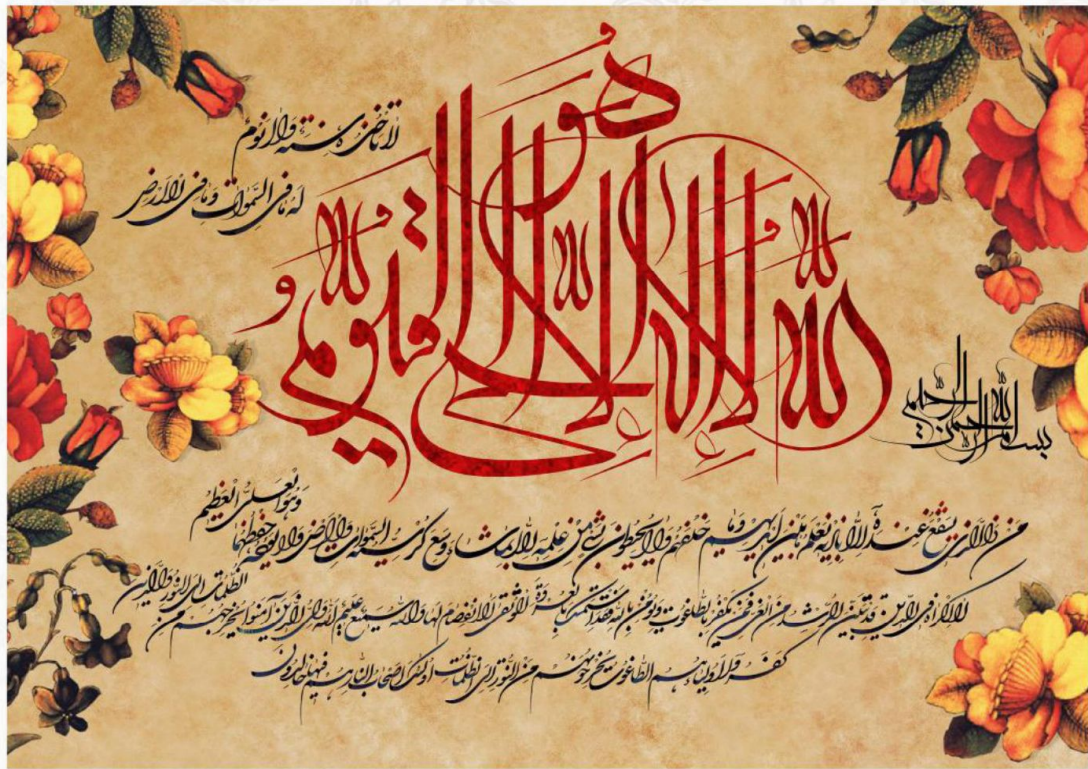 بسم الله الرحمن الرحیم
الله لا إله إلا هو الحی القیوم
لا تاخذه سنة ولا نوم
له ما فی السموات وما فی الارض
من ذا الذی یشفع عنده الا باذنه یعلم ما بین ایدیهم وما خلفهم ولا یحیطون بشئ من علمه الا بما شاء وسع کرسیه السموات والارض ولا یؤده حفظهما
وهو العلی العظیم
لا اکراه فی الدین قد تبین الرشد من الغی فمن یکفر بالطاغوت ویؤمن بالله فقد استمسک بالعروة الوثقی لا انفصام لها والله سمیع علیم الله ولی الذین آمنوا یخرجهم من
الظلمات الی النور والذین
کفروا اولیاؤهم الطاغوت یخرجونهم من النور الی الظلمات اولئک اصحاب النار هم فیها خالدون